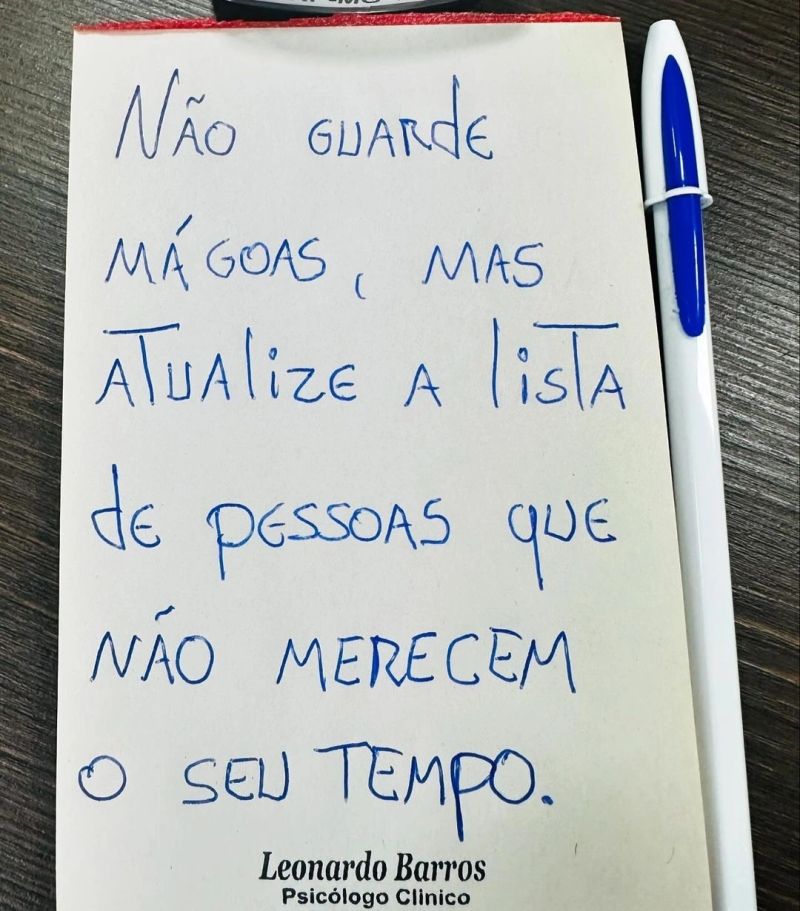 NÃO GUARDE
MÁGOAS, MAS
ATUALIZE A LISTA
DE PESSOAS QUE
NÃO MERECEM
O SEU TEMPO.
Leonardo Barros
Psicólogo Clinico